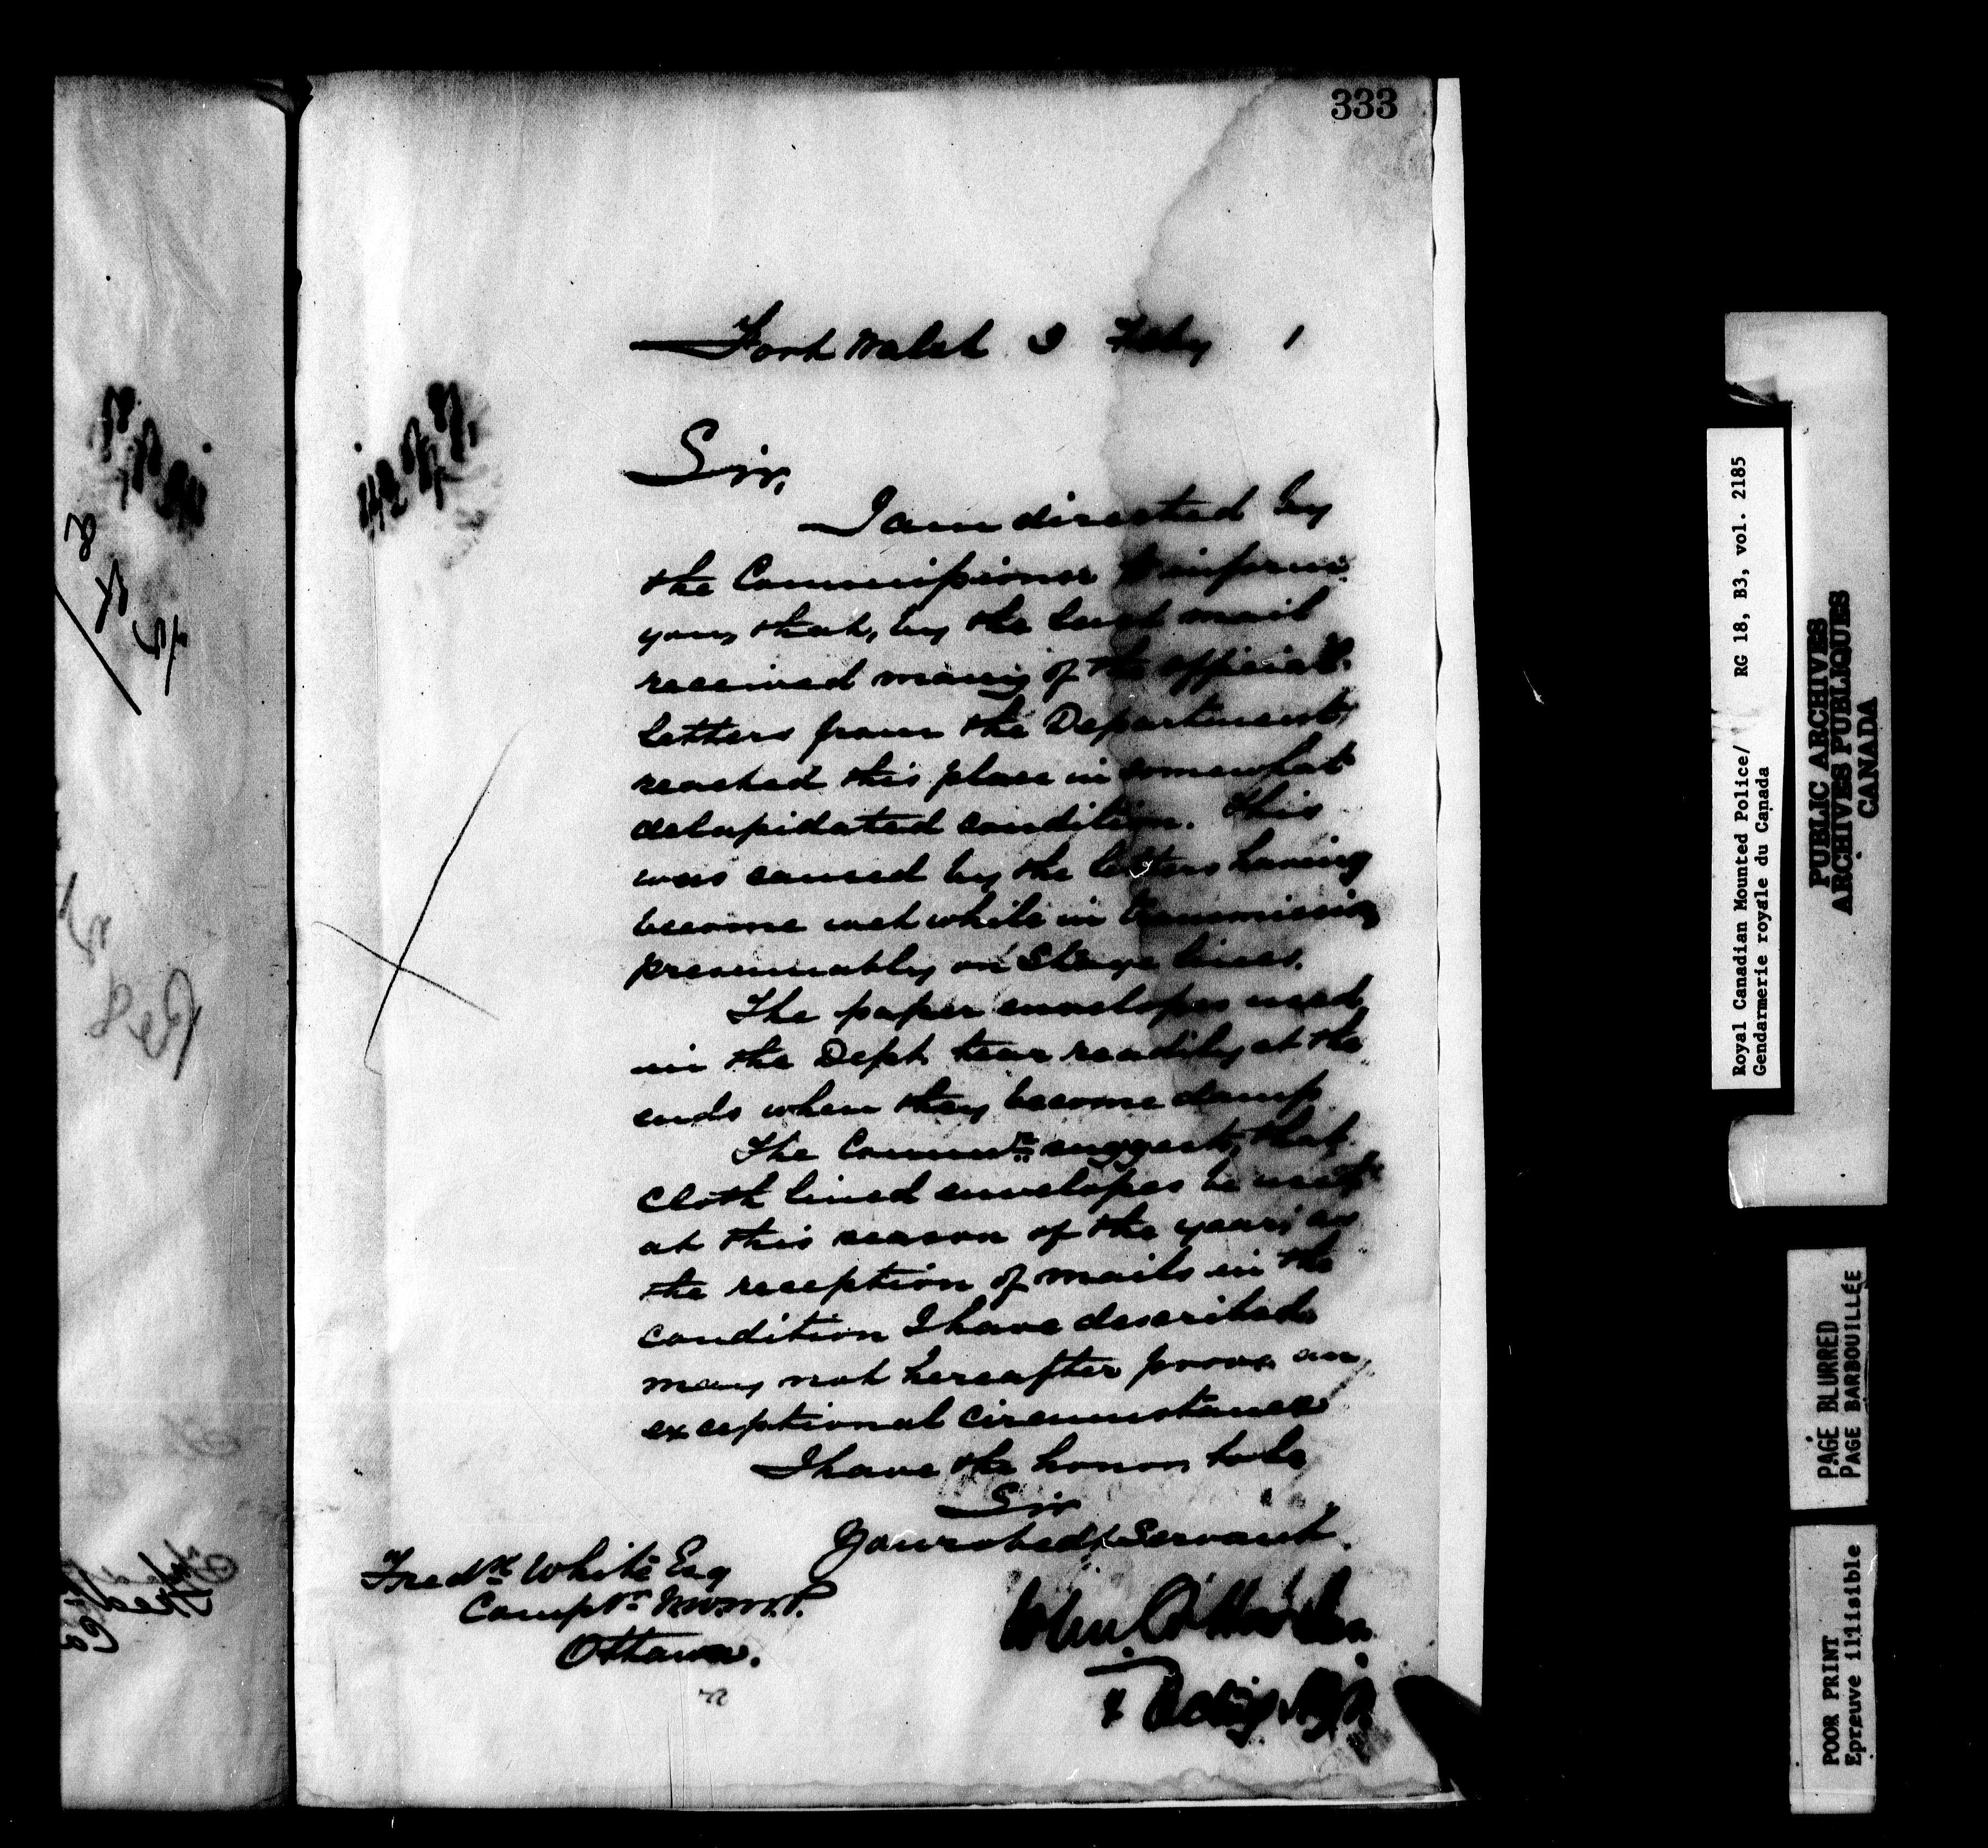 333
Fort Walsh 3 Feby 1
Sir,
I am directed by
the Commissioner to inform
you, that, by the last mail
received many of the official
letters from the Department,
reached this place in somewhat
delapidated condition. This
was caused by the letters having
become wet while in transmission
presumably on Stage lines.
The paper envelopes used
in the Dept tear readily at the
ends when they become damp
The Commr suggests, that
cloth lined envelopes be used
at this season of the year, as
the reception of mails in the
condition I have described
may not hereafter prove an
exceptional circumstance
I have the honor to be
Sir
Your obedt Servant.
Fredk White Esq
Comptr N.W.M.P.
Ottawa.
Royal Canadian Mounted Police/ RG 18, B3, vol. 2185
Gendarmerie royale du Canada
PUBLIC ARCHIVES
ARCHIVES PUBLIQUES
CANADA
PAGE BLURRED
PAGE BARBOUILLÉE
POOR PRINT
Epreuve illisible